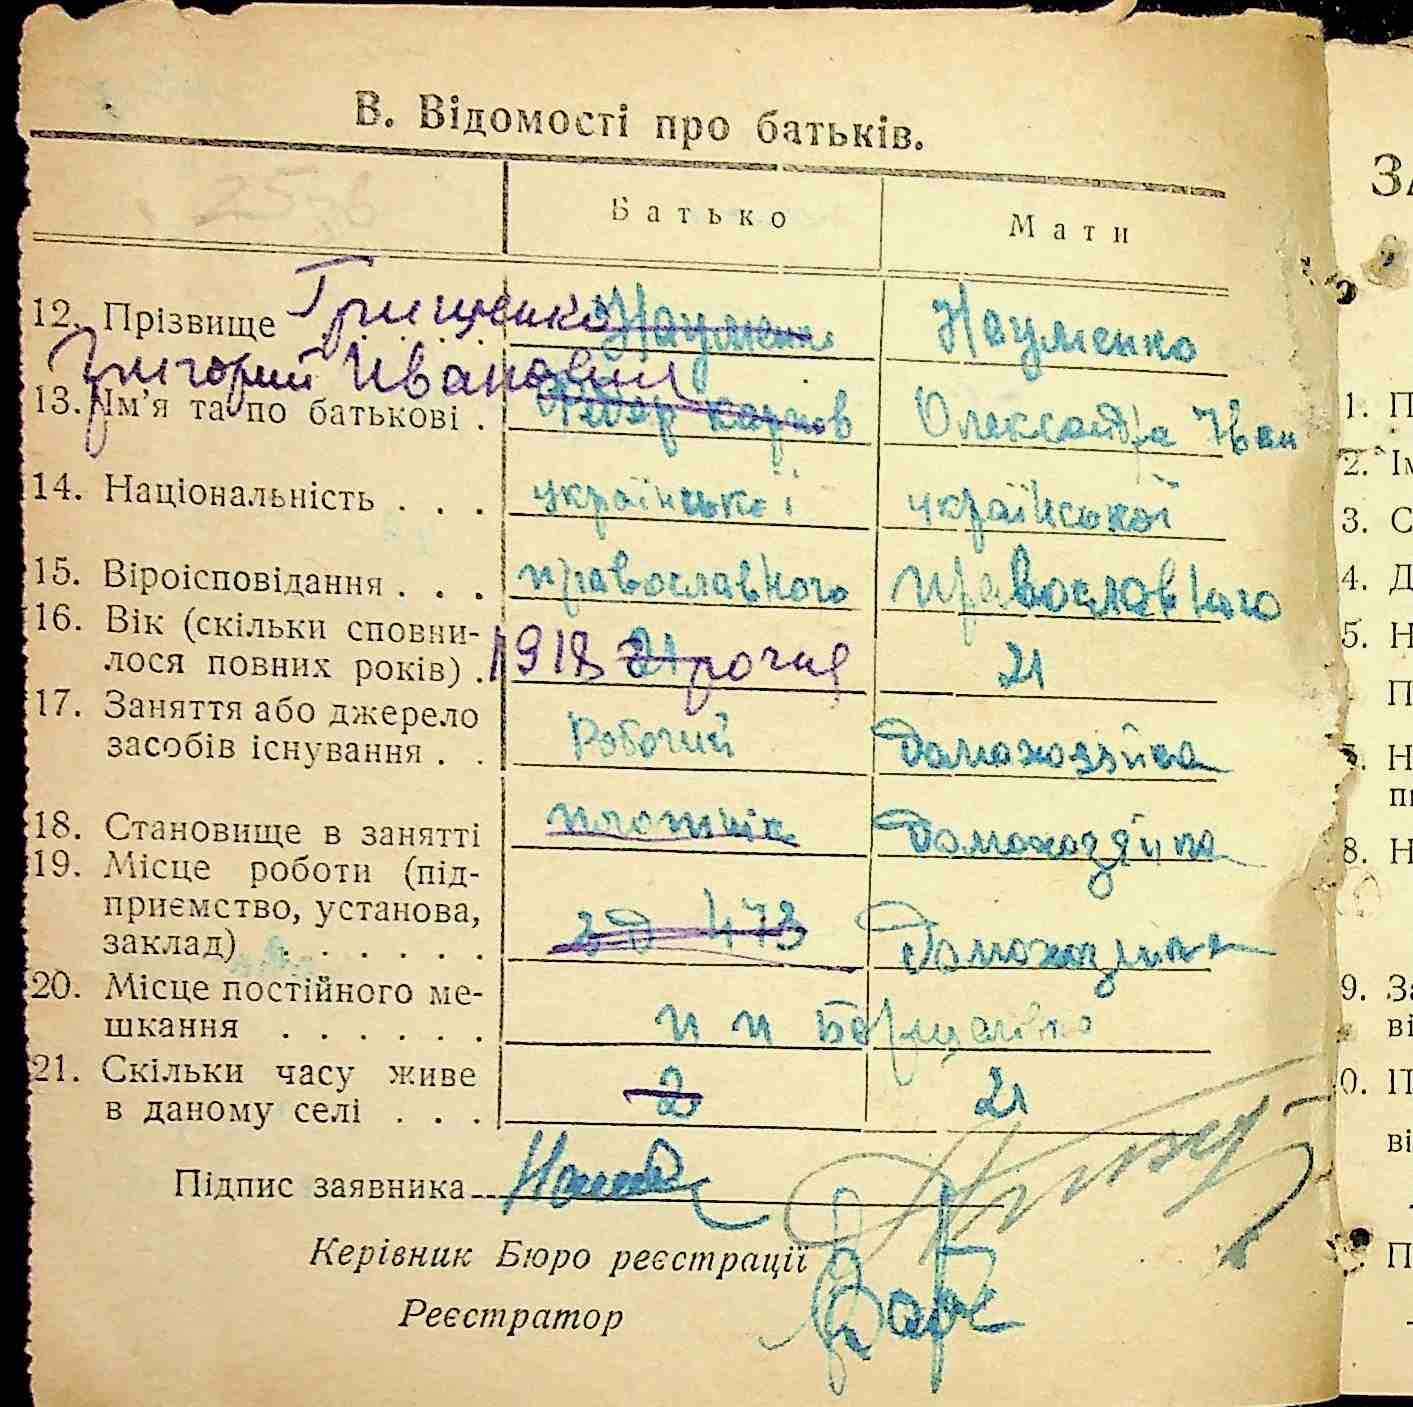 В. Відомості про батьків.
Батько Мати
12. Прізвище Грищенко Науменко Науменко
Григорий Иванович
13. Ім'я та по батькові . Федор Карпов Олександра Іван
14. Національність . . . української української
15. Віроісповідання . . . православного православного
16. Вік (скільки сповни-
лося повних років) . 1918 21 рочия 21
17. Заняття або джерело
засобів існування . . Робочий домохозяйка
18. Становище в занятті плотнік домохозяйка
19. Місце роботи (під-
приємство, установа,
заклад) . . . . . . зд 473 домохозяйка
20. Місце постійного ме-
шкання . . . . . . п п
21. Скільки часу живе
в даному селі . . . 2 21
Підпис заявника
Керівник Бюро реєстрації
Реєстратор